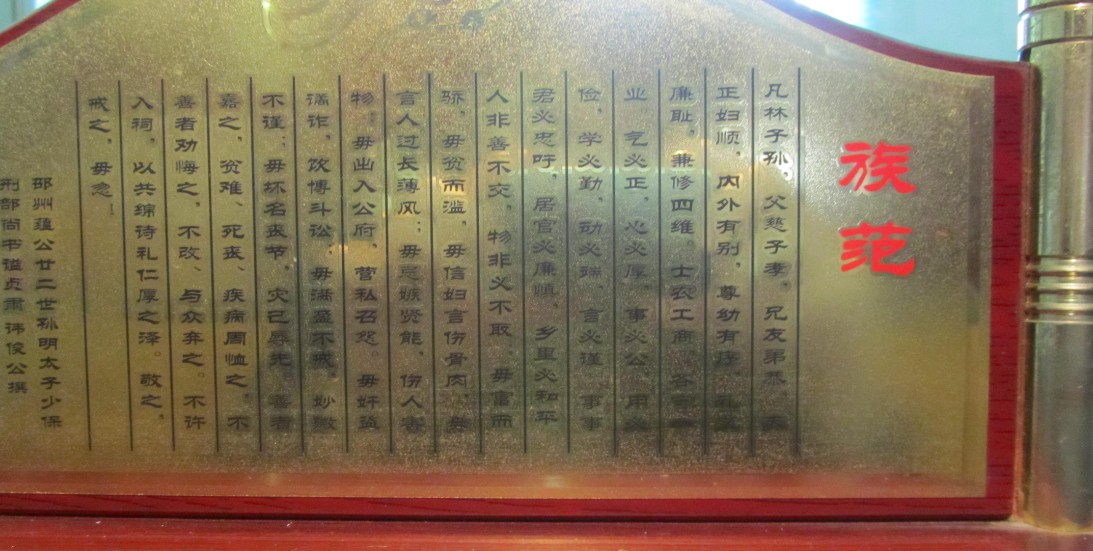 族范
凡林子孙。父慈子孝。兄友弟恭。夫
正妇顺。内外有别。尊幼有序。礼义
廉耻。兼修四维。士农工商。各守
业。气必正。心必厚。事必公。用必
俭。学必勤。动必端。言必谨。事事
君必忠吁。居官必廉慎。乡里必和平
人非善不交。物非义不取。毋富而
骄。毋贫而滥。毋信妇言伤骨肉。毋
言人过长薄风；毋忌嫉贤能。伤人害
物；毋出入公府。营私召怨。毋奸盗
谲诈。饮博斗讼。毋满盈不戒。妙微
不谨；毋坏名丧节。灾己辱先。善者
嘉之。贫难、死丧、疾病周恤之。不
善者劝悔之。不改、与众弃之。不许
入祠。以共绵待礼仁厚之泽。敬之。
戒之，毋怠……
邵州蕴公廿二世孙明太子少保
刑部尚书谥贞肃讳俊公撰